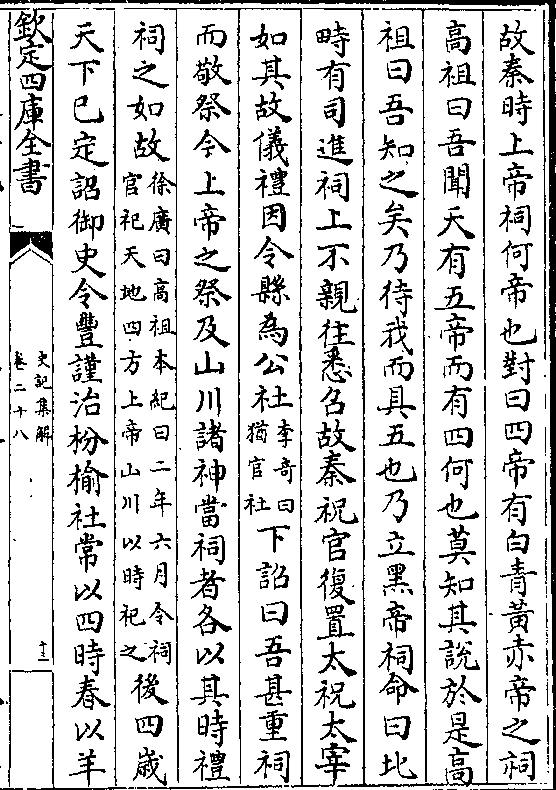 故秦時上帝祠何帝也對曰四帝有白青黃赤帝之祠
高祖曰吾聞天有五帝而有四何也莫知其說於是高
祖曰吾知之矣乃待我而具五也乃立黑帝祠命曰北
畤有司進祠上不親往悉召故秦祝官復置太祝太宰
如其故儀禮因令縣為公社李奇曰猶官社下詔曰吾甚重祠
而敬祭今上帝之祭及山川諸神當祠者各以其時禮
祠之如故徐廣曰高祖本紀曰二年六月令祠官祀天地四方上帝山川以時祀之後四歲
天下已定詔御史令豐謹治枌榆社常以四時春以羊
欽定四庫全書
史記集解
卷二十八
十三